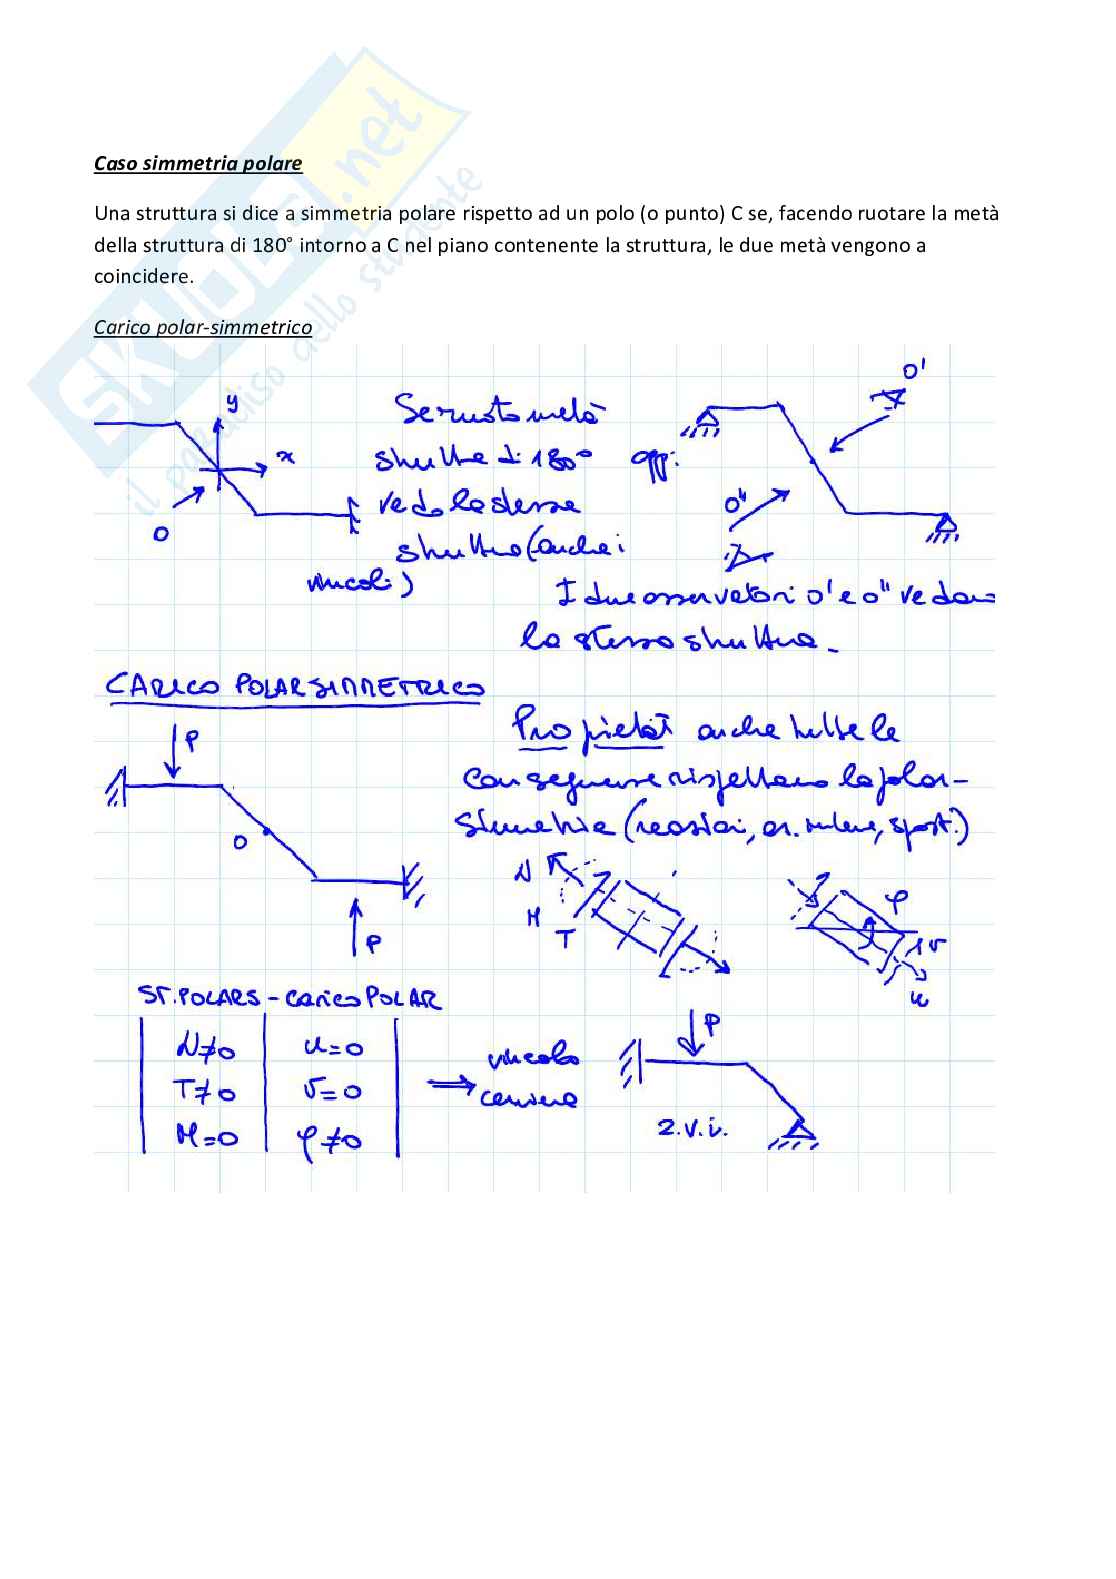 SKUOLA.net
il paradiso dello studente
Caso simmetria polare
Una struttura si dice a simmetria polare rispetto ad un polo (o punto) C se, facendo ruotare la metà
della struttura di 180° intorno a C nel piano contenente la struttura, le due metà vengono a
coincidere.
Carico polar-simmetrico
y
x
O
Se ruoto metà
strutt. di 180°
vedo la stessa
struttura (anche i
vincoli)
opp:
O'
O''
I due osservatori O' e O'' vedono
la stessa struttura.
CARICO POLARSIMMETRICO
P
O
P
Proprietà anche tutte le
conseguenze rispettano la polar-
simmetria (reazioni, az. interne, spost.)
N
M
T
φ
v
u
ST. POLARS - Carico POLAR
N≠0 u=0
T≠0 v=0
M=0 φ≠0
⇒ vincolo
cerniera
P
2.v.i.